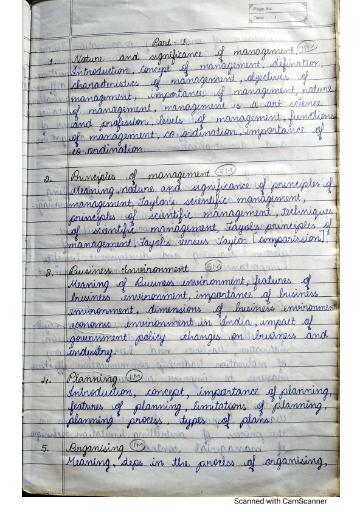 Page No.
Date
Part - 1
1. Nature and significance of management
Introduction, concept of management, defination,
characteristics of management, objectives of
management, importance of management, nature
of management, management is a art science
and profession, levels of management, functions
of management, co-ordination, importance of
co-ordination.
2. Principles of management
Meaning, nature and significance of principles of
management, Taylor's scientific management,
principles of scientific management, Techniques
of scientific management, Fayol's principles of
management, Fayol's versus Taylor [comparission].
3. Business Environment
Meaning of Business environment, features of
business environment, importance of business
environment, dimensions of business environment
economic environment in India, impact of
government policy changes on business and
industry.
4. Planning
Introduction, concept, importance of planning,
features of planning, limitations of planning,
planning process, types of plans
5. Organising
Meaning, steps in the process of organising,
Scanned with CamScanner